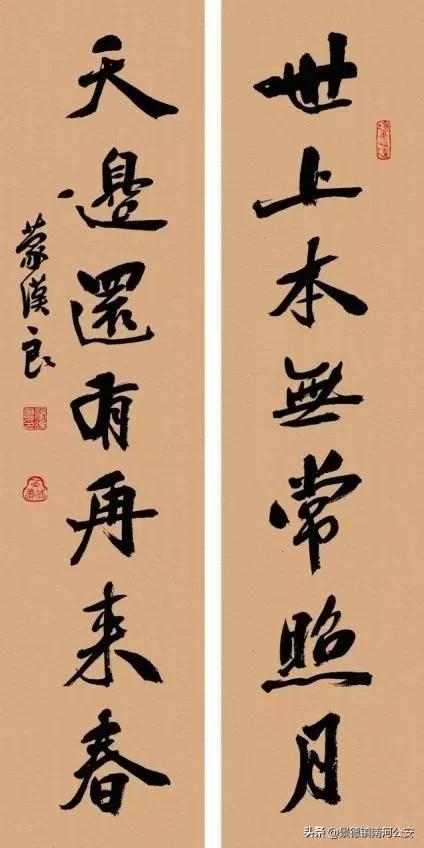 世上本無常照月
天邊還有再来春
蒙漢良
头条 @景德镇南河公安